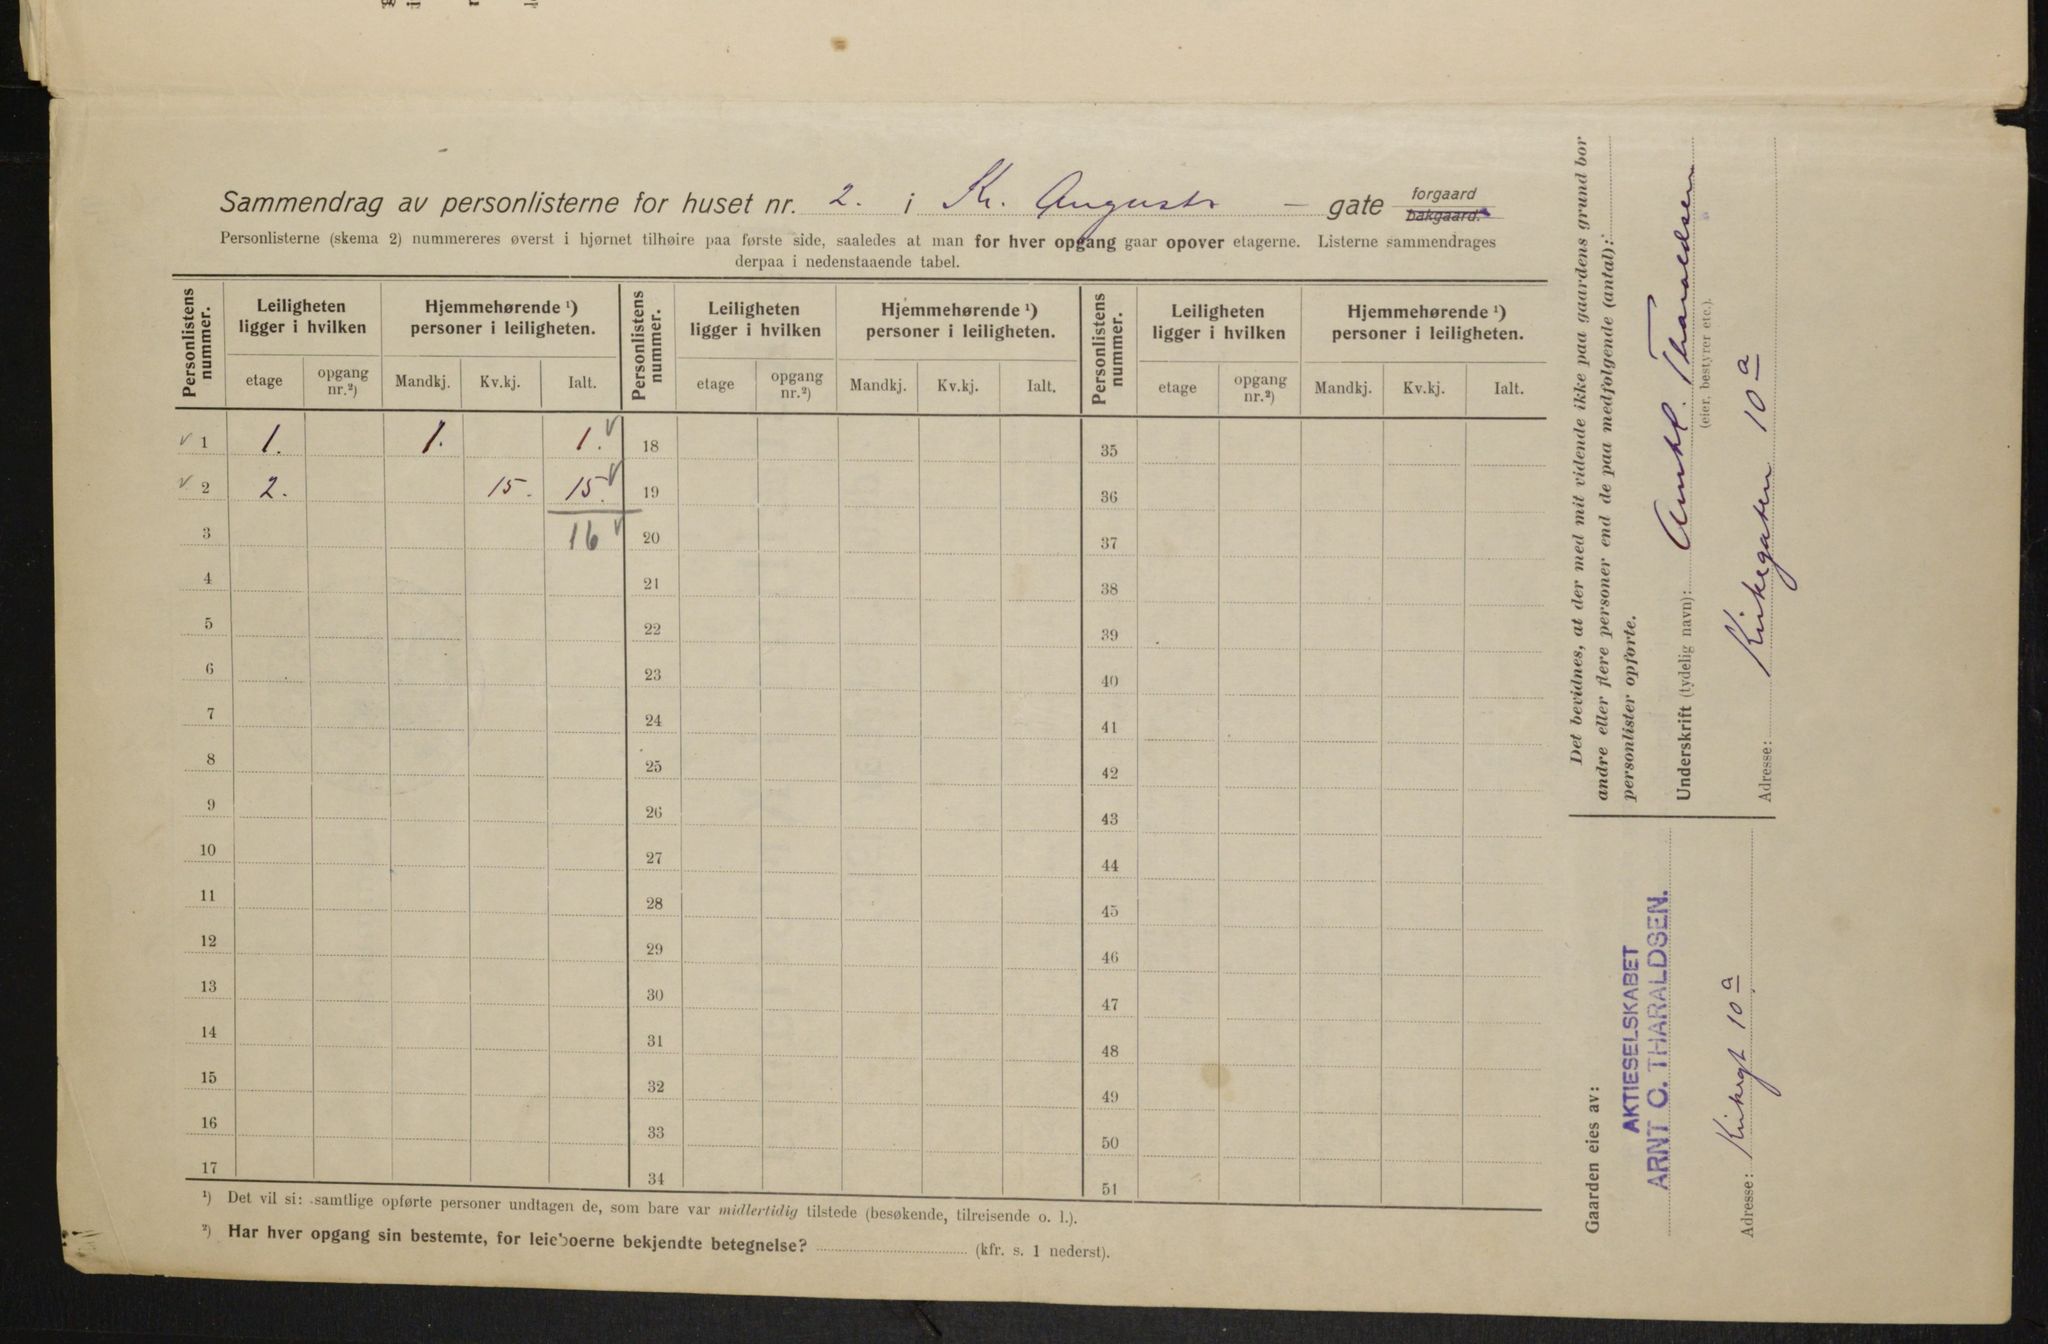 Sammendrag av personlisterne for huset nr. 2. i Kr. Augusts – gate forgaard bakgaard.
Personlisterne (skema 2) nummereres øverst i hjørnet tilhøire paa første side, saaledes at man for hver opgang gaar opover etagerne. Listerne sammendrages
derpaa i nedenstaaende tabel.
Personlistens nummer. Leiligheten ligger i hvilken Hjemmehørende ¹) personer i leiligheten. Personlistens nummer. Leiligheten ligger i hvilken Hjemmehørende ¹) personer i leiligheten. Personlistens nummer. Leiligheten ligger i hvilken Hjemmehørende ¹) personer i leiligheten.
etage opgang nr.²) Mandkj. Kv.kj. Ialt. etage opgang nr.²) Mandkj. Kv.kj. Ialt. etage opgang nr.²) Mandkj. Kv.kj. Ialt.
√ 1 1. 1. 1. √ 18 35
√ 2 2. 15. 15. √ 19 36
3 16 √ 20 37
4 21 38
5 22 39
6 23 40
7 24 41
8 25 42
9 26 43
10 27 44
11 28 45
12 29 46
13 30 47
14 31 48
15 32 49
16 33 50
17 34 51
¹) Det vil si: samtlige opførte personer undtagen de, som bare var midlertidig tilstede (besøkende, tilreisende o. l.).
²) Har hver opgang sin bestemte, for leieboerne bekjendte betegnelse? (kfr. s. 1 nederst).
Det bevidnes, at der med mit vidende ikke paa gaardens grund bor
andre eller flere personer end de paa medfølgende (antal):
personlister opførte.
Underskrift (tydelig navn): Tharaldsen
(eier, bestyrer etc.).
Adresse: Kirkegaten 10 a
Gaarden eies av:
AKTIESELSKABET
ARNT C. THARALDSEN.
Adresse: Kirkegt 10 a